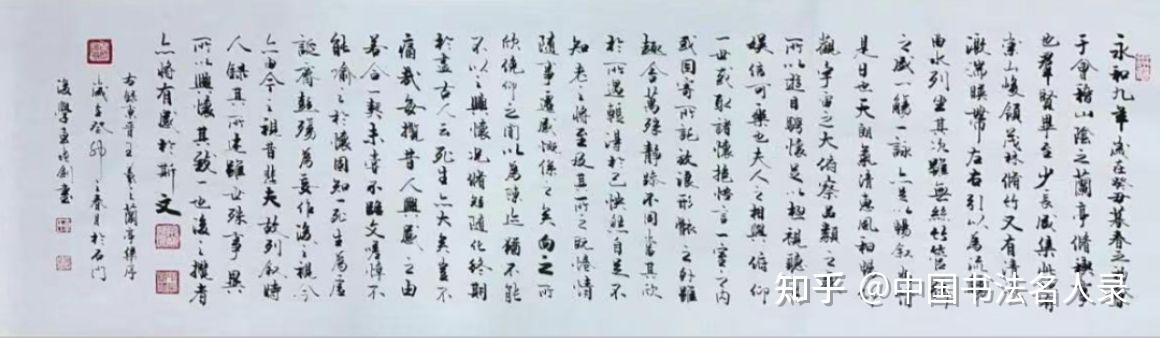 永和九年歲在癸丑暮春之初會
于會稽山陰之蘭亭脩禊事
也羣賢畢至少長咸集此地有
崇山峻領茂林脩竹又有清流
激湍暎帶左右引以為流觴
曲水列坐其次雖無絲竹管弦
之盛一觴一詠亦足以暢叙幽情
是日也天朗氣清惠風和暢仰
觀宇宙之大俯察品類之盛
所以遊目騁懷足以極視聽之
娛信可樂也夫人之相與俯仰
一世或取諸懷抱悟言一室之內
或因寄所託放浪形骸之外雖
趣舍萬殊靜躁不同當其欣
於所遇輒得於己怏然自足不
知老之將至及其所之既惓情
隨事遷感慨係之矣向之所
欣俛仰之間以為陳迹猶不能
不以之興懷況脩短隨化終期
於盡古人云死生亦大矣豈不
痛哉每攬昔人興感之由
若合一契未嘗不臨文嗟悼不
能喻之於懷固知一死生為虛
誕齊彭殤為妄作後之視今
亦由今之視昔悲夫故列叙時
人錄其所述雖世殊事異
所以興懷其致一也後之攬者
亦將有感於斯文
右錄東晉王羲之蘭亭禊序
歲在癸卯之春月於石門
後學書
知乎 @中国书法名人录